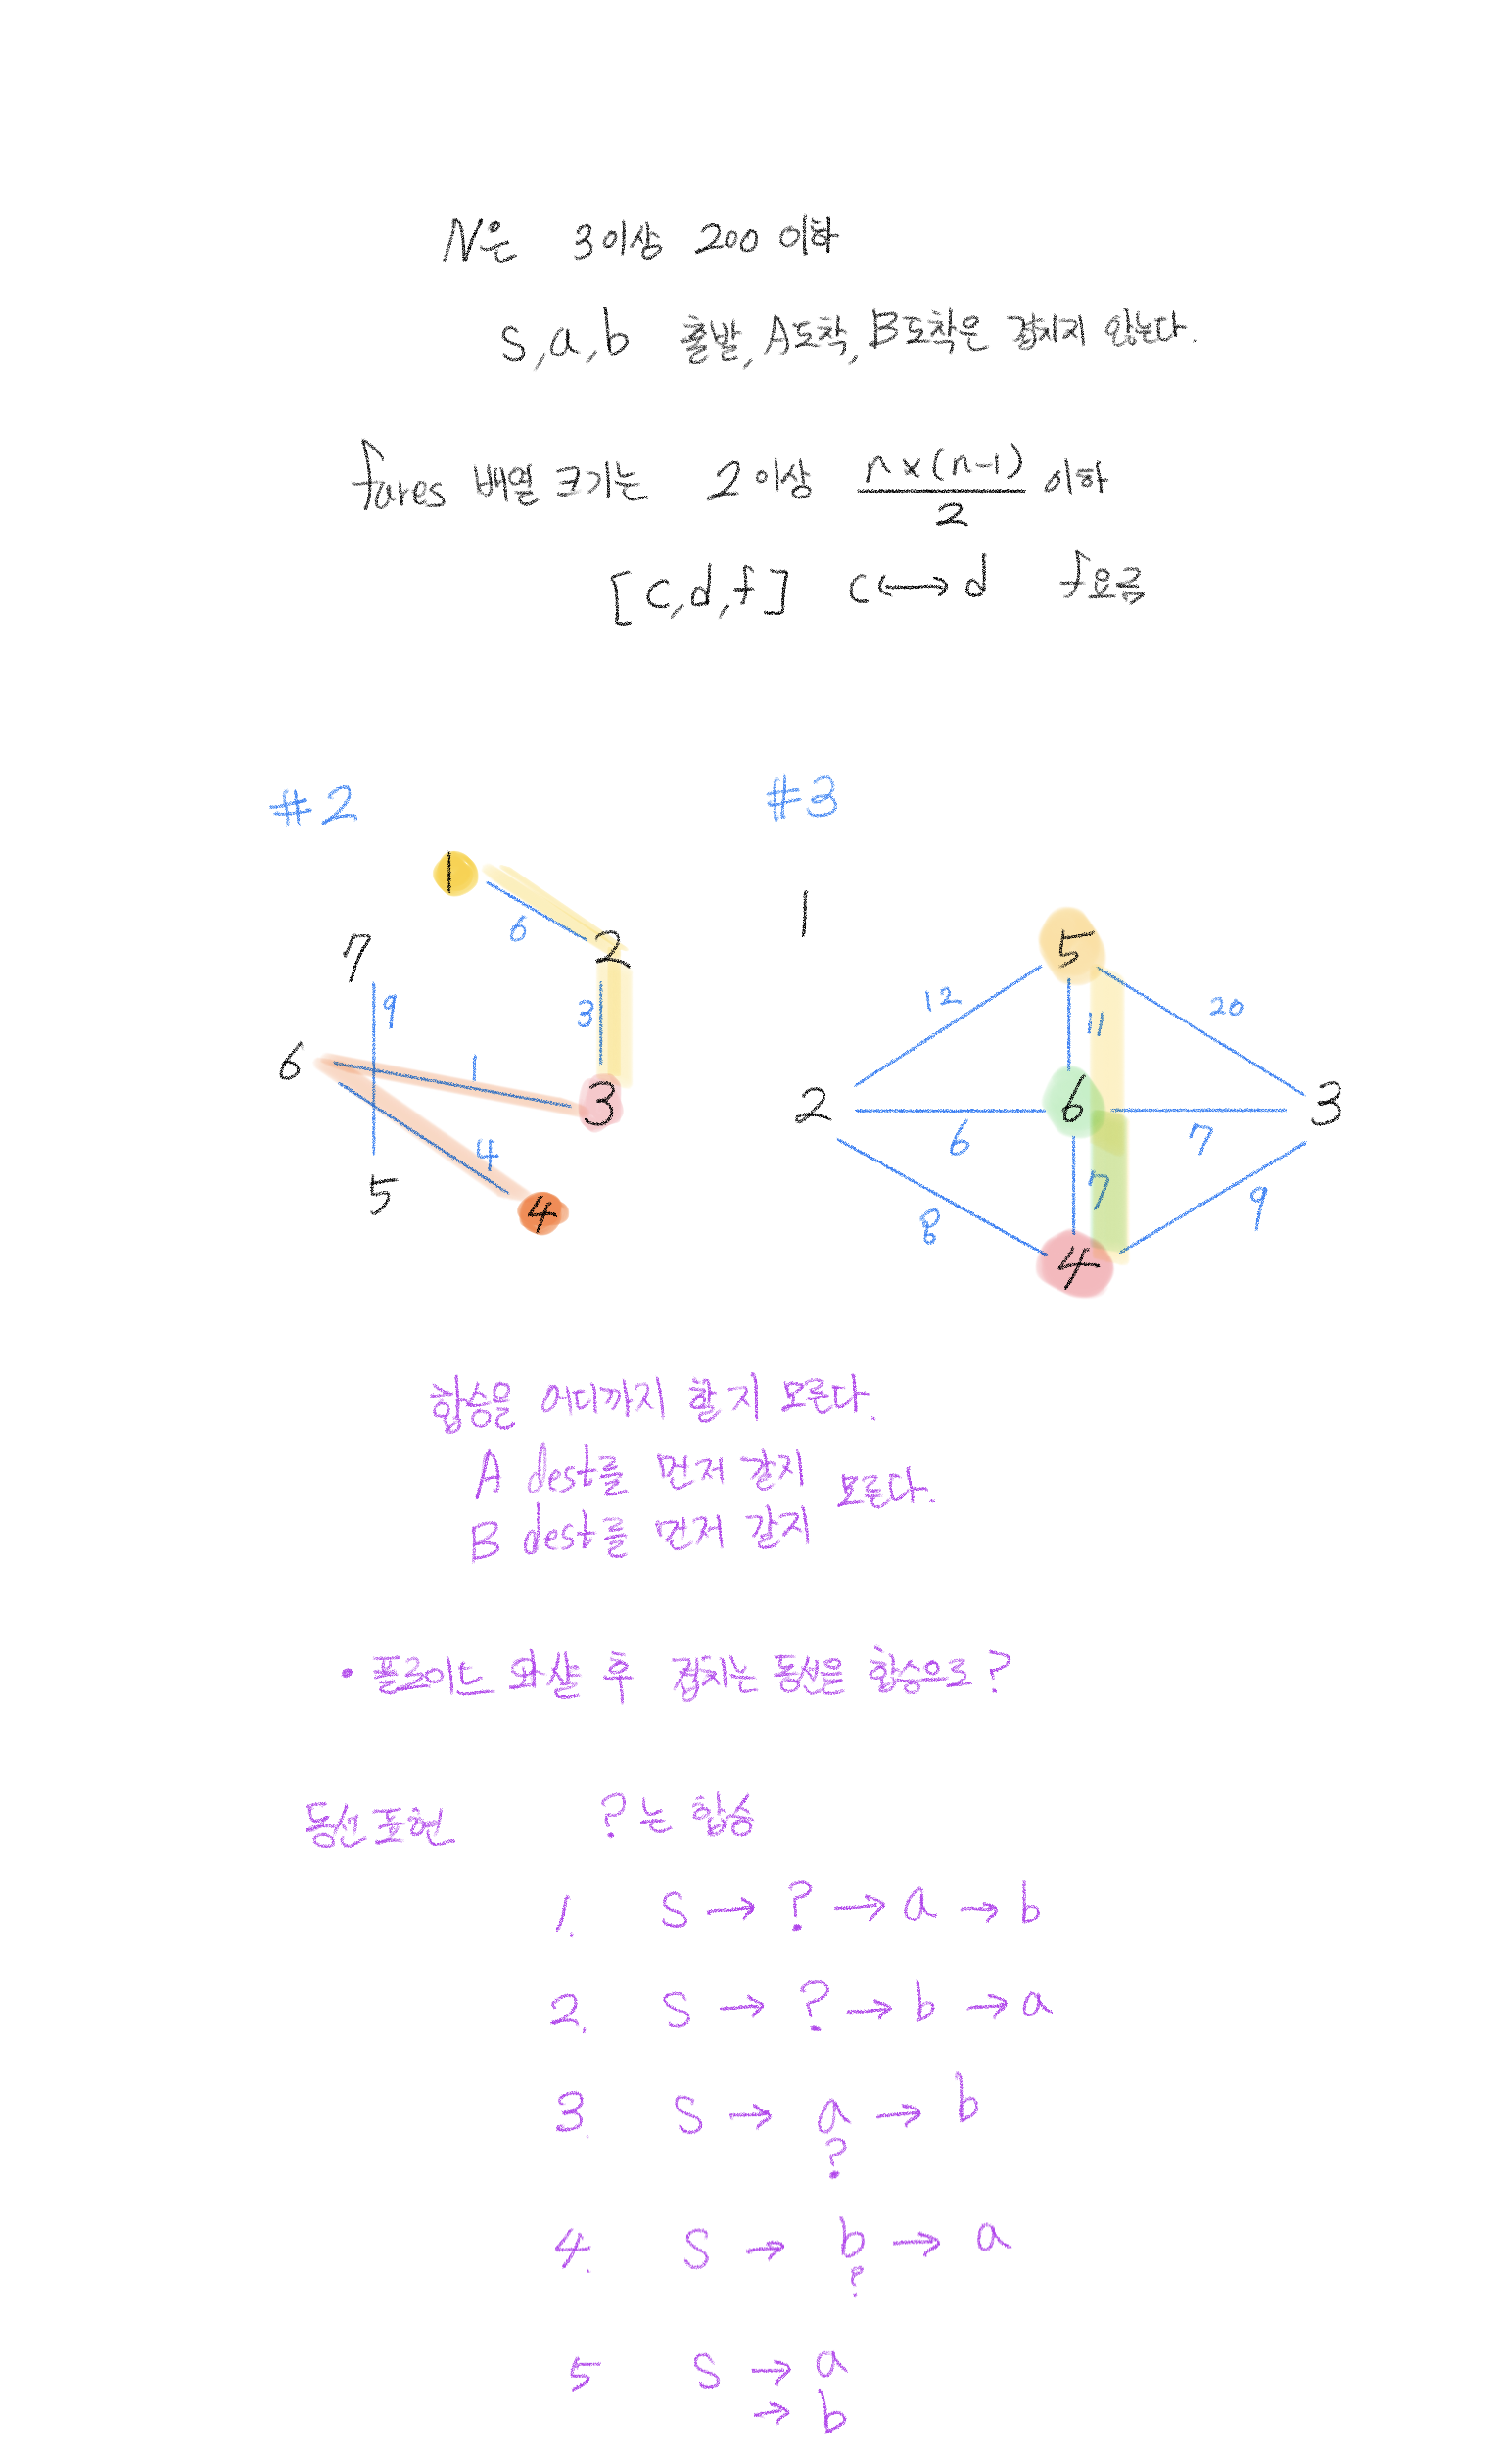 N은 3이상 200 이하
s,a,b 출발, A도착, B도착은 겹치지 않는다.
fares 배열 크기는 2이상 n×(n-1)/2 이하
[c,d,f] c↔d f요금
#2 #3
1
6
2
7
9
3
6
1
3
4
5
4
1
5
12
11
20
2
6
6
7
3
8
7
9
4
합승을 어디까지 할지 모른다.
A dest를 먼저 갈지
B dest를 먼저 갈지 모른다.
• 플로이드 와샬 후 겹치는 동선은 합승으로?
동선표현 ?는 합승
1. s → ? → a → b
2. s → ? → b → a
3. s → a → b
?
4. s → b → a
?
5 s → a
→ b